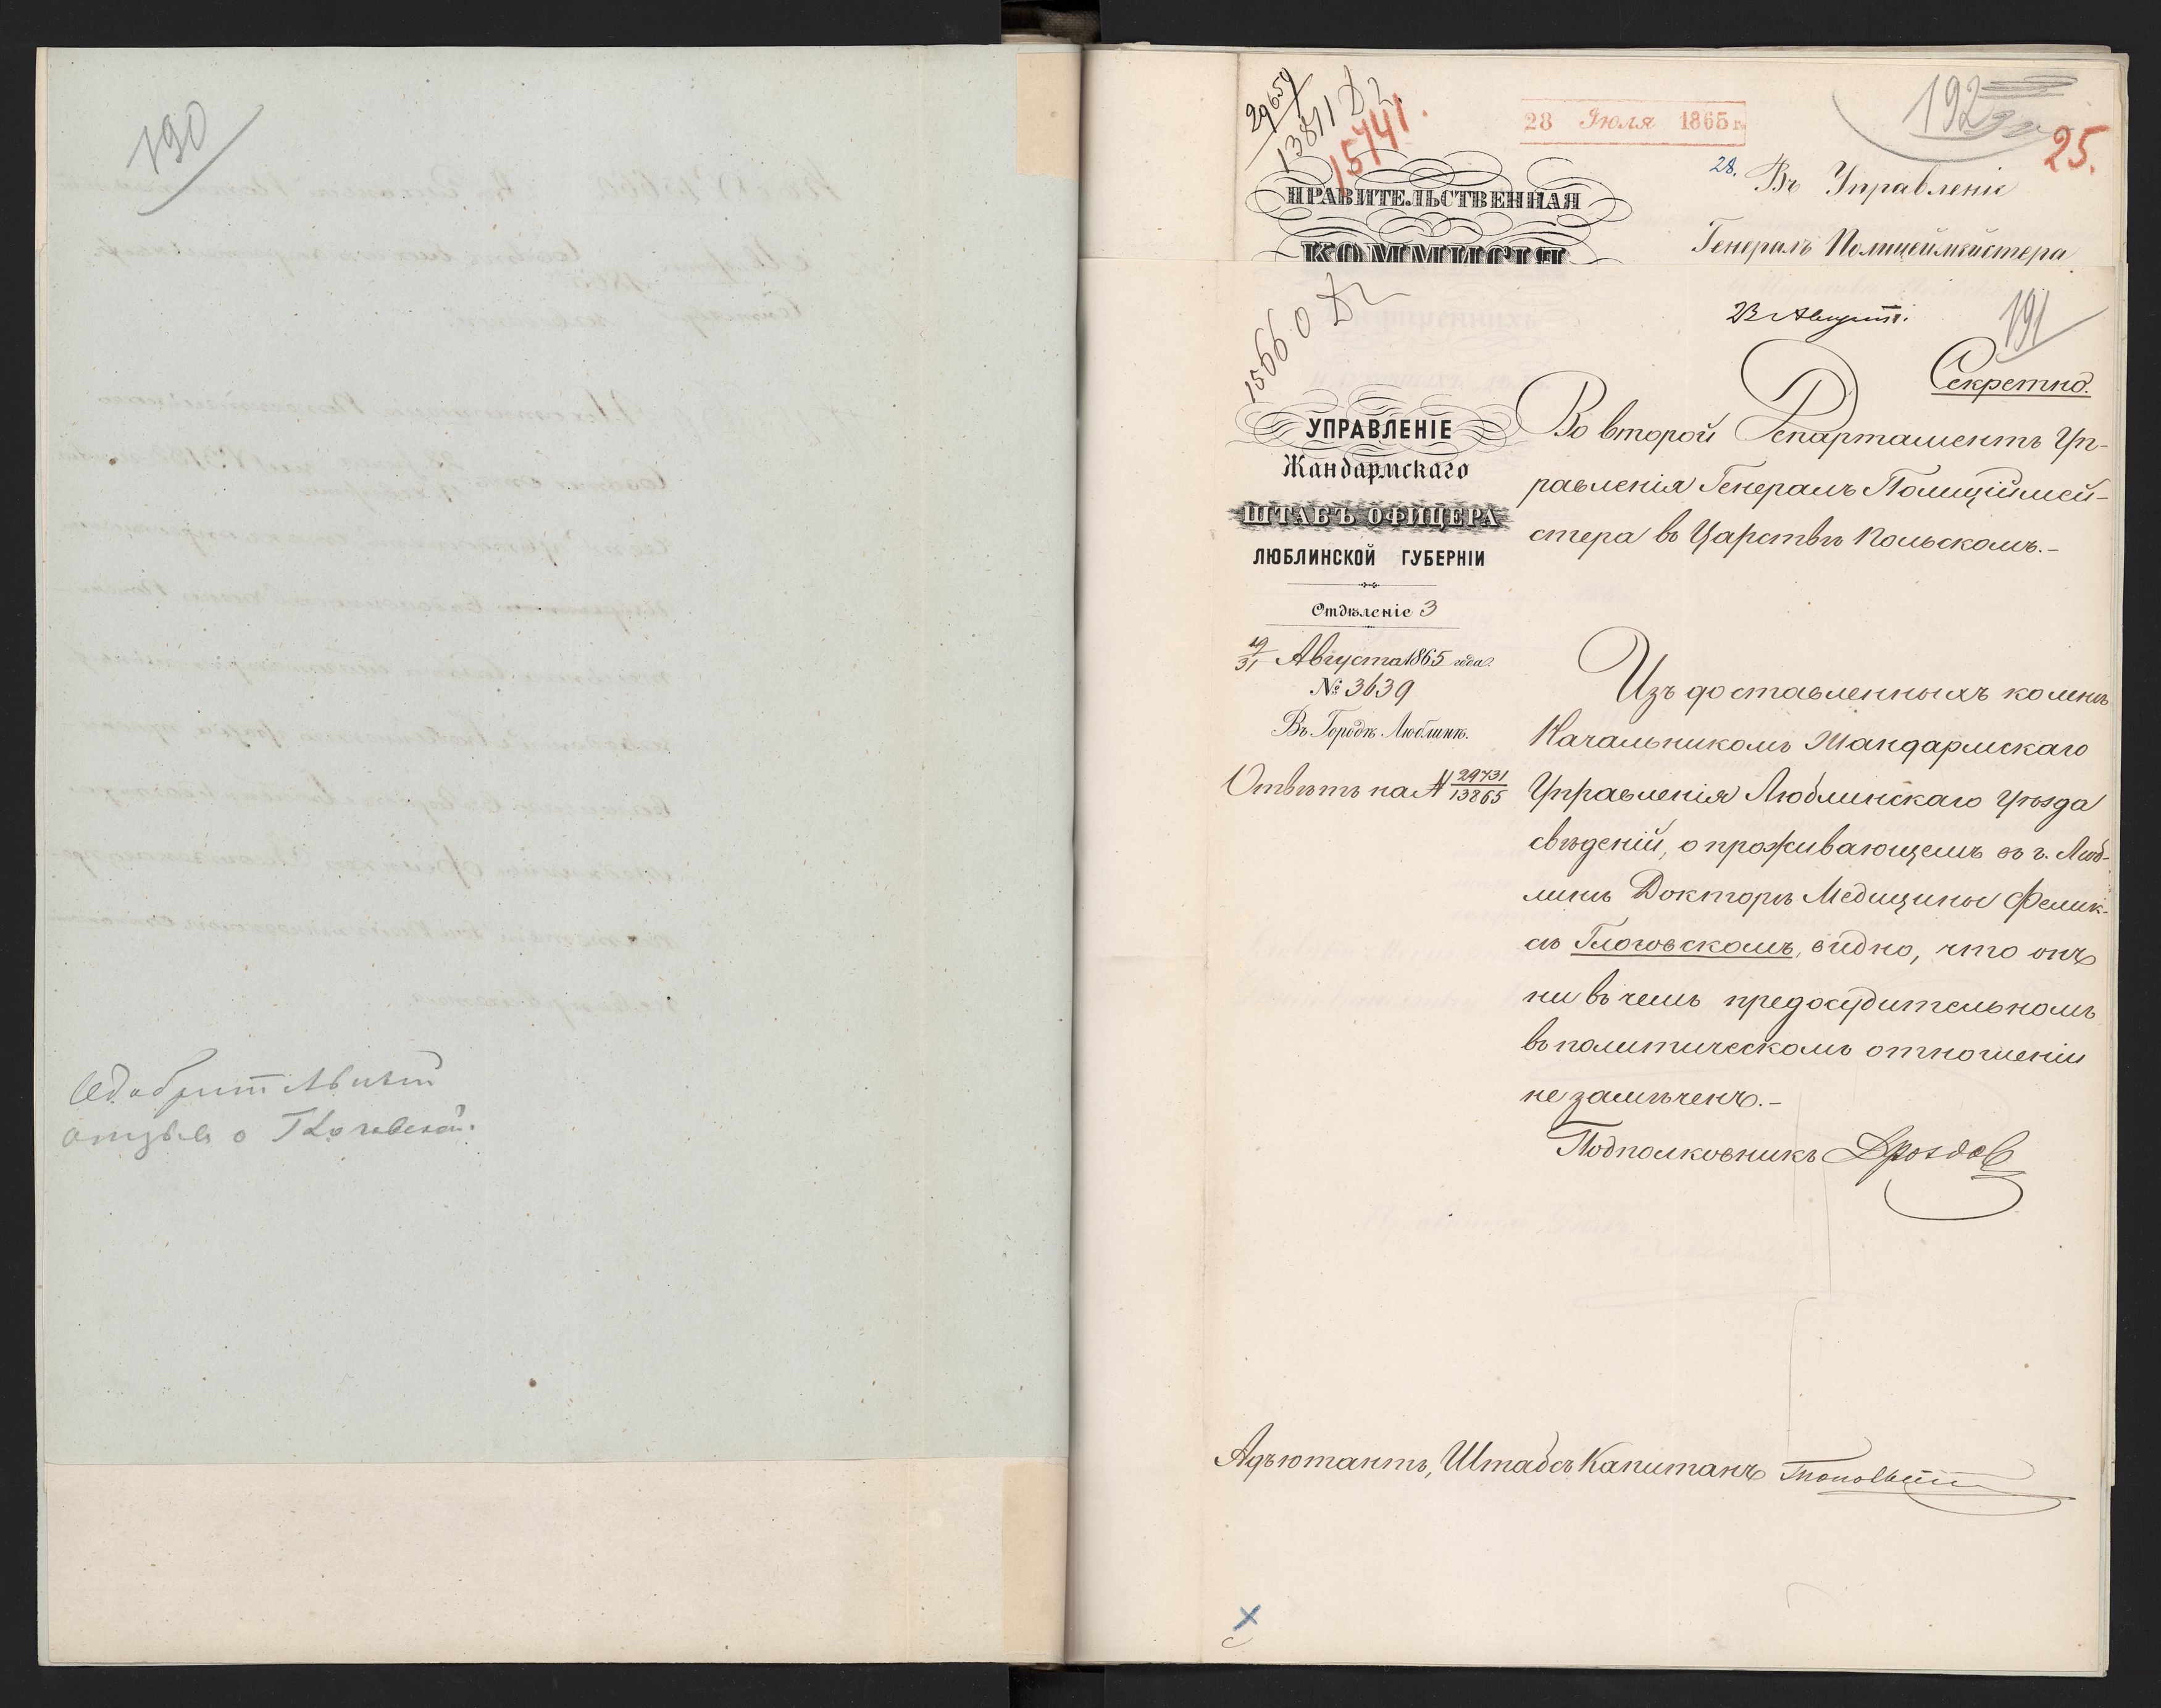 190
Одобрительный
отзывъ о Глоговскомъ.
29659
13811 Д2.
15741.
28 Іюля 1865 г.
192
25.
28.
Въ Управленіе
Генералъ Полицеймейстера
ПРАВИТЕЛЬСТВЕННАЯ
КОММИСІЯ
23 Августа.
191
15660 Д2
Секретно.
УПРАВЛЕНІЕ
Жандармскаго
ШТАБЪ ОФИЦЕРА
ЛЮБЛИНСКОЙ ГУБЕРНІИ
Отдѣленіе 3
19/31 Августа 1865 года.
№ 3639
Въ Городѣ Люблинѣ.
Отвѣтъ на № 29731/13865
Во второй Департаментъ Уп-
равленія Генералъ Полиціймей-
стера въ Царствѣ Польскомъ.-
Изъ доставленныхъ ко мнѣ
Начальникомъ Жандармскаго
Управленія Люблинскаго Уѣзда
свѣденій, о проживающемъ въ г. Люб-
линѣ Докторѣ Медицины Фелик-
сѣ Глоговскомъ, видно, что онъ
ни въ чемъ предосудительномъ
въ политическомъ отношеніи
не замѣченъ.-
Подполковникъ Дроздов
Адъютантъ, Штабсъ Капитанъ